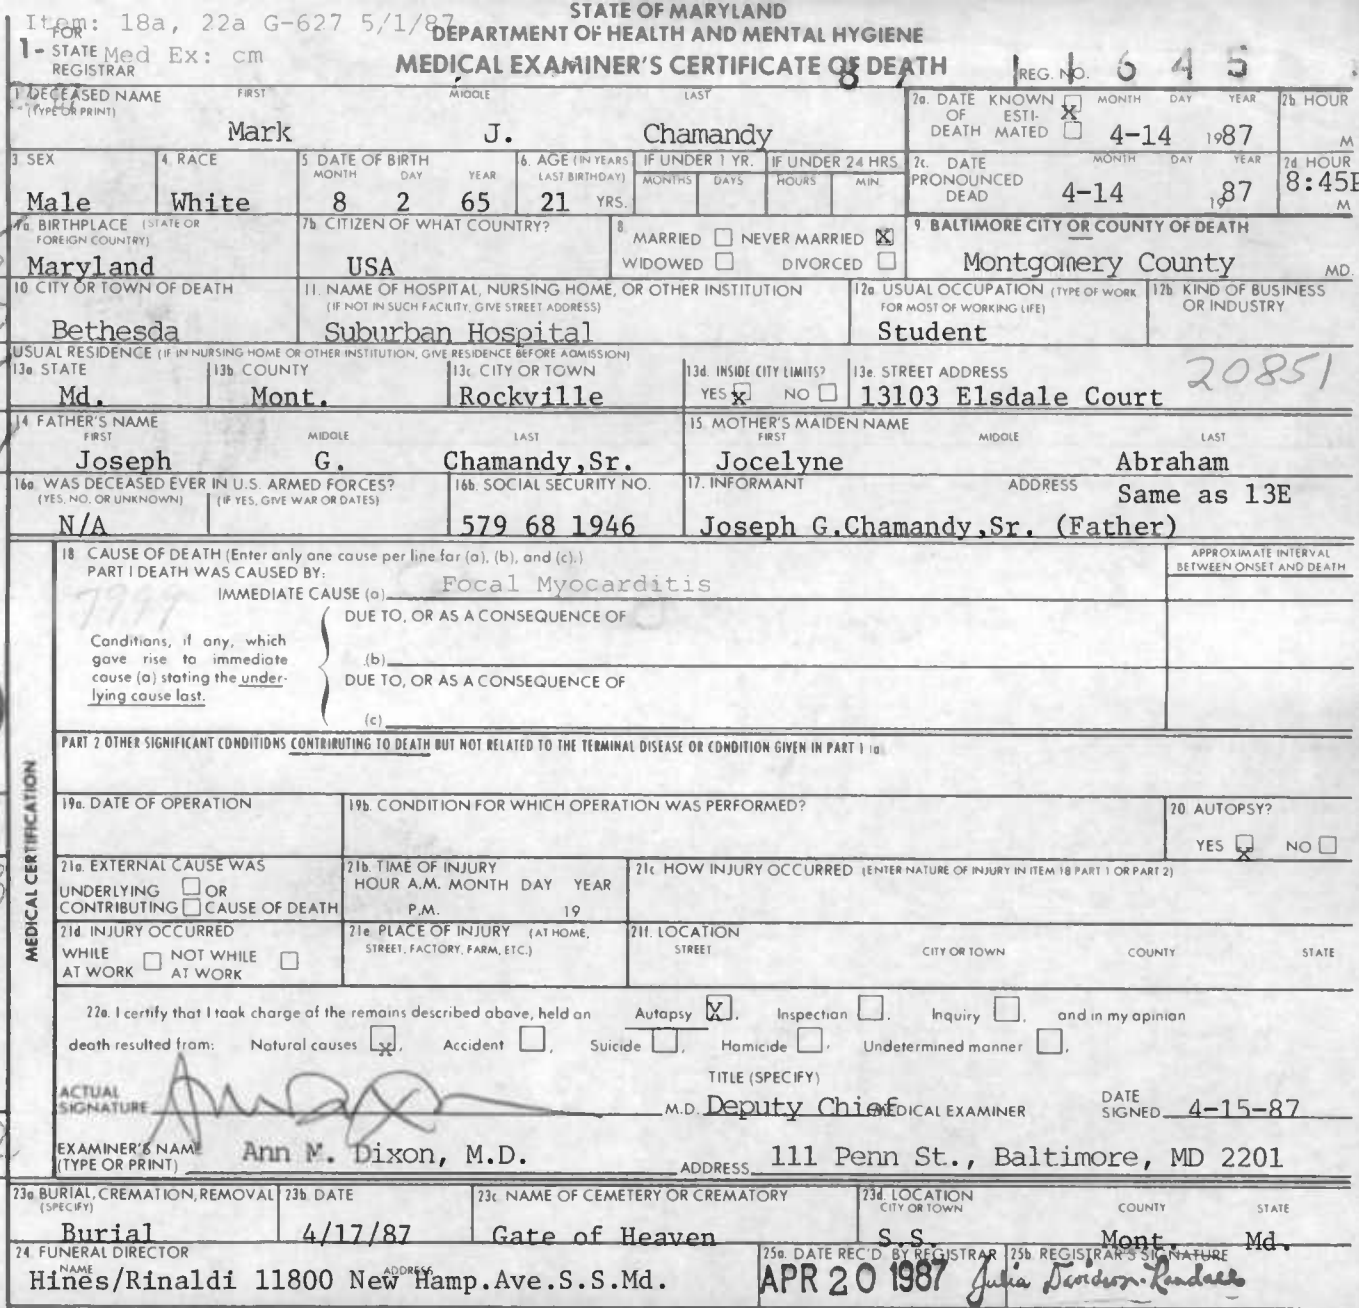 Item: 18a, 22a G-627 5/1/87
STATE OF MARYLAND
DEPARTMENT OF HEALTH AND MENTAL HYGIENE
MEDICAL EXAMINER'S CERTIFICATE OF DEATH
1- FOR STATE REGISTRAR
Med Ex: cm
87
REG. NO. 11645
1 DECEASED NAME (TYPE OR PRINT) FIRST MIDDLE LAST
Mark J. Chamandy
2a. DATE OF DEATH KNOWN X ESTIMATED MONTH DAY YEAR
4-14 1987
2b HOUR
M
3 SEX
Male
4. RACE
White
5 DATE OF BIRTH MONTH DAY YEAR
8 2 65
6. AGE (IN YEARS LAST BIRTHDAY)
21 YRS.
IF UNDER 1 YR. MONTHS DAYS
IF UNDER 24 HRS HOURS MIN.
2c. DATE PRONOUNCED DEAD MONTH DAY YEAR
4-14 1987
2d HOUR
8:45P
M
7a. BIRTHPLACE (STATE OR FOREIGN COUNTRY)
Maryland
7b CITIZEN OF WHAT COUNTRY?
USA
8. MARRIED NEVER MARRIED X
WIDOWED DIVORCED
9 BALTIMORE CITY OR COUNTY OF DEATH
Montgomery County MD.
10 CITY OR TOWN OF DEATH
Bethesda
11. NAME OF HOSPITAL, NURSING HOME, OR OTHER INSTITUTION
(IF NOT IN SUCH FACILITY, GIVE STREET ADDRESS)
Suburban Hospital
12a USUAL OCCUPATION (TYPE OF WORK FOR MOST OF WORKING LIFE)
Student
12b KIND OF BUSINESS OR INDUSTRY
USUAL RESIDENCE (IF IN NURSING HOME OR OTHER INSTITUTION, GIVE RESIDENCE BEFORE ADMISSION)
13a STATE
Md.
13b COUNTY
Mont.
13c CITY OR TOWN
Rockville
13d. INSIDE CITY LIMITS?
YES X NO
13e. STREET ADDRESS
20851
13103 Elsdale Court
14 FATHER'S NAME FIRST MIDDLE LAST
Joseph G. Chamandy,Sr.
15. MOTHER'S MAIDEN NAME FIRST MIDDLE LAST
Jocelyne Abraham
16a WAS DECEASED EVER IN U.S. ARMED FORCES?
(YES, NO, OR UNKNOWN) (IF YES, GIVE WAR OR DATES)
N/A
16b. SOCIAL SECURITY NO.
579 68 1946
17. INFORMANT ADDRESS
Same as 13E
Joseph G.Chamandy,Sr. (Father)
MEDICAL CERTIFICATION
18 CAUSE OF DEATH (Enter only one cause per line for (a), (b), and (c).)
PART I DEATH WAS CAUSED BY:
IMMEDIATE CAUSE (a) Focal Myocarditis
APPROXIMATE INTERVAL
BETWEEN ONSET AND DEATH
7999
DUE TO, OR AS A CONSEQUENCE OF
Conditions, if any, which
gave rise to immediate
cause (a) stating the under-
lying cause last.
(b)
DUE TO, OR AS A CONSEQUENCE OF
(c)
PART 2 OTHER SIGNIFICANT CONDITIONS CONTRIBUTING TO DEATH BUT NOT RELATED TO THE TERMINAL DISEASE OR CONDITION GIVEN IN PART 1 (a)
19a. DATE OF OPERATION
19b. CONDITION FOR WHICH OPERATION WAS PERFORMED?
20. AUTOPSY?
YES X NO
21a. EXTERNAL CAUSE WAS
UNDERLYING OR
CONTRIBUTING CAUSE OF DEATH
21b. TIME OF INJURY
HOUR A.M. MONTH DAY YEAR
P.M. 19
21c HOW INJURY OCCURRED (ENTER NATURE OF INJURY IN ITEM 18 PART 1 OR PART 2)
21d INJURY OCCURRED
WHILE AT WORK NOT WHILE AT WORK
21e PLACE OF INJURY (AT HOME, STREET, FACTORY, FARM, ETC.)
21f. LOCATION
STREET CITY OR TOWN COUNTY STATE
22a. I certify that I took charge of the remains described above, held an Autopsy X, Inspection, Inquiry, and in my opinion
death resulted from: Natural causes X, Accident, Suicide, Homicide, Undetermined manner.
TITLE (SPECIFY)
ACTUAL SIGNATURE M.D. Deputy Chief MEDICAL EXAMINER
DATE SIGNED 4-15-87
EXAMINER'S NAME (TYPE OR PRINT) Ann M. Dixon, M.D.
ADDRESS 111 Penn St., Baltimore, MD 2201
23a BURIAL, CREMATION, REMOVAL (SPECIFY)
Burial
23b DATE
4/17/87
23c NAME OF CEMETERY OR CREMATORY
Gate of Heaven
23d. LOCATION CITY OR TOWN COUNTY STATE
S.S. Mont. Md.
24 FUNERAL DIRECTOR
NAME ADDRESS
Hines/Rinaldi 11800 New Hamp.Ave.S.S.Md.
25a. DATE REC'D. BY REGISTRAR
APR 20 1987
25b. REGISTRAR'S SIGNATURE
Julia Davidson-Randall